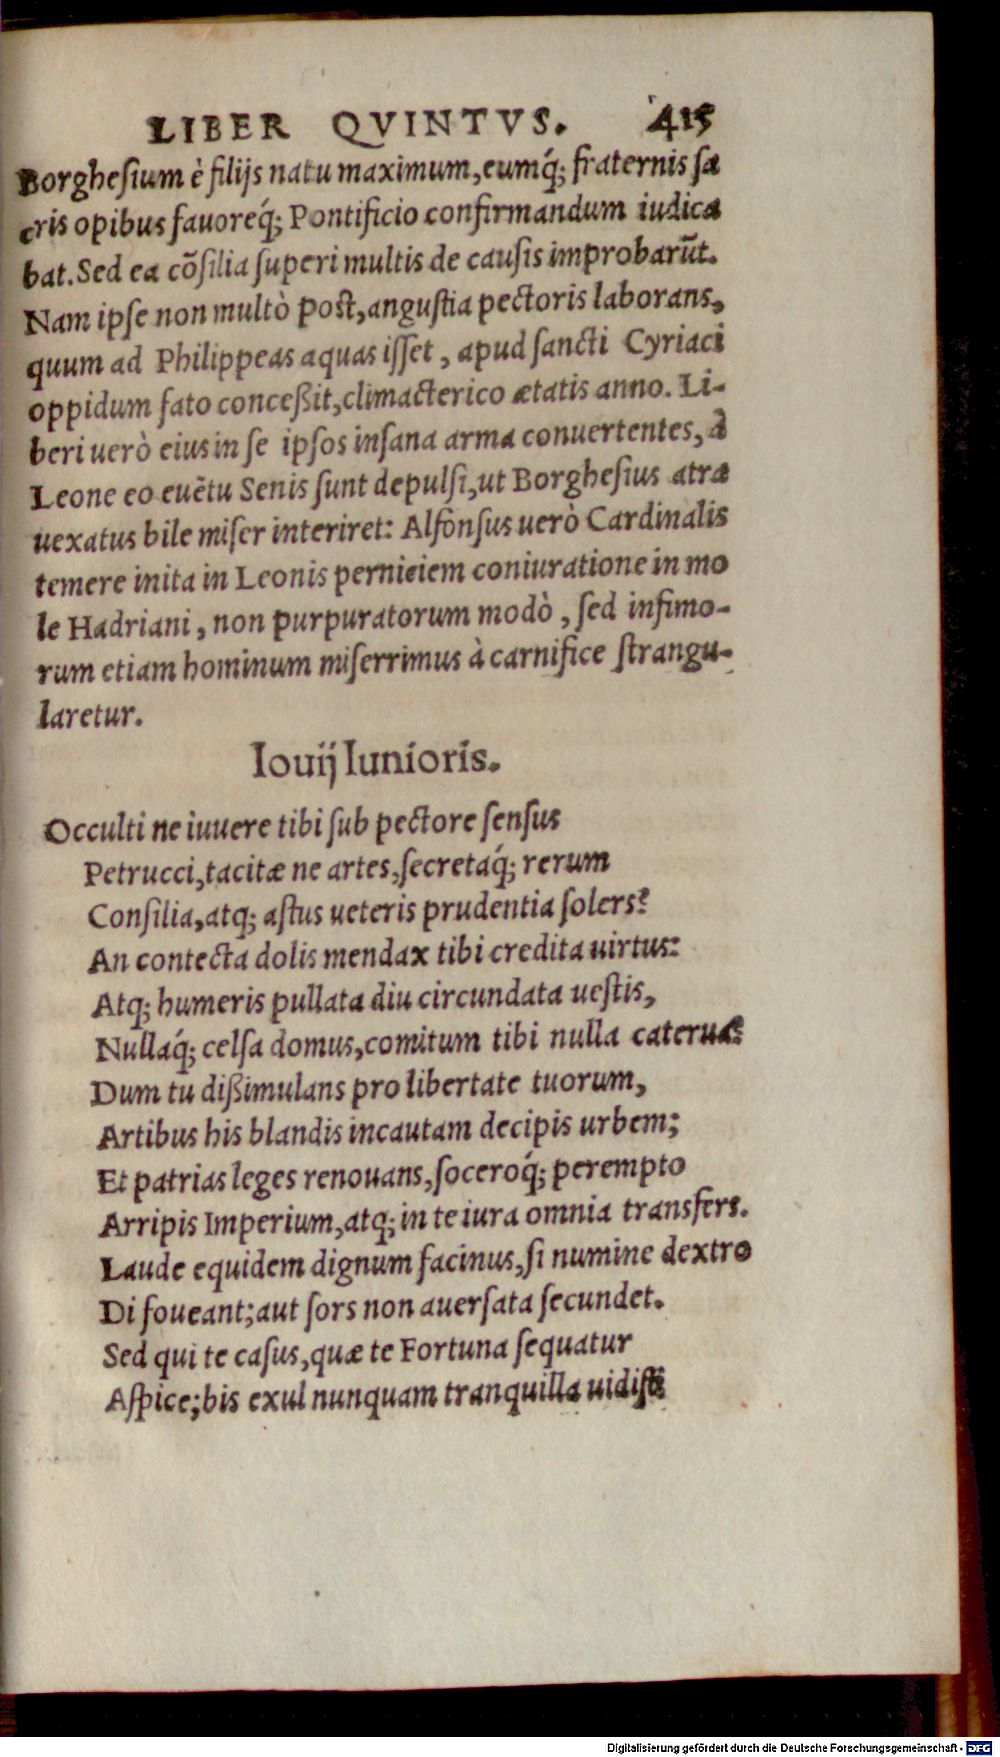 LIBER QVINTVS. 415
Borgheſium è filijs natu maximum, eumq́; fraternis ſa
cris opibus fauoreq́; Pontificio confirmandum iudica
bat. Sed ea cōſilia ſuperi multis de cauſis improbarūt.
Nam ipſe non multò poſt, anguſtia pectoris laborans,
quum ad Philippeas aquas iſſet, apud ſancti Cyriaci
oppidum fato conceßit, climacterico ætatis anno. Li-
beri uerò eius in ſe ipſos inſana arma conuertentes, à
Leone eo euētu Senis ſunt depulſi, ut Borgheſius atra
uexatus bile miſer interiret: Alfonſus uerò Cardinalis
temere inita in Leonis perniciem coniuratione in mo
le Hadriani, non purpuratorum modò, ſed infimo-
rum etiam hominum miſerrimus à carnifice ſtrangu-
laretur.
Iouij Iunioris.
Occulti ne iuuere tibi ſub pectore ſenſus
Petrucci, tacitæ ne artes, ſecretaq́; rerum
Conſilia, atq; aſtus ueteris prudentia ſolers?
An contecta dolis mendax tibi credita uirtus:
Atq; humeris pullata diu circundata ueſtis,
Nullaq́; celſa domus, comitum tibi nulla caterua?
Dum tu dißimulans pro libertate tuorum,
Artibus his blandis incautam decipis urbem;
Et patrias leges renouans, ſoceroq́; perempto
Arripis Imperium, atq; in te iura omnia transfers.
Laude equidem dignum facinus, ſi numine dextro
Di foueant; aut ſors non auerſata ſecundet.
Sed qui te caſus, quæ te Fortuna ſequatur
Aſpice; bis exul nunquam tranquilla uidiſti
Digitalisierung gefördert durch die Deutsche Forschungsgemeinschaft - DFG